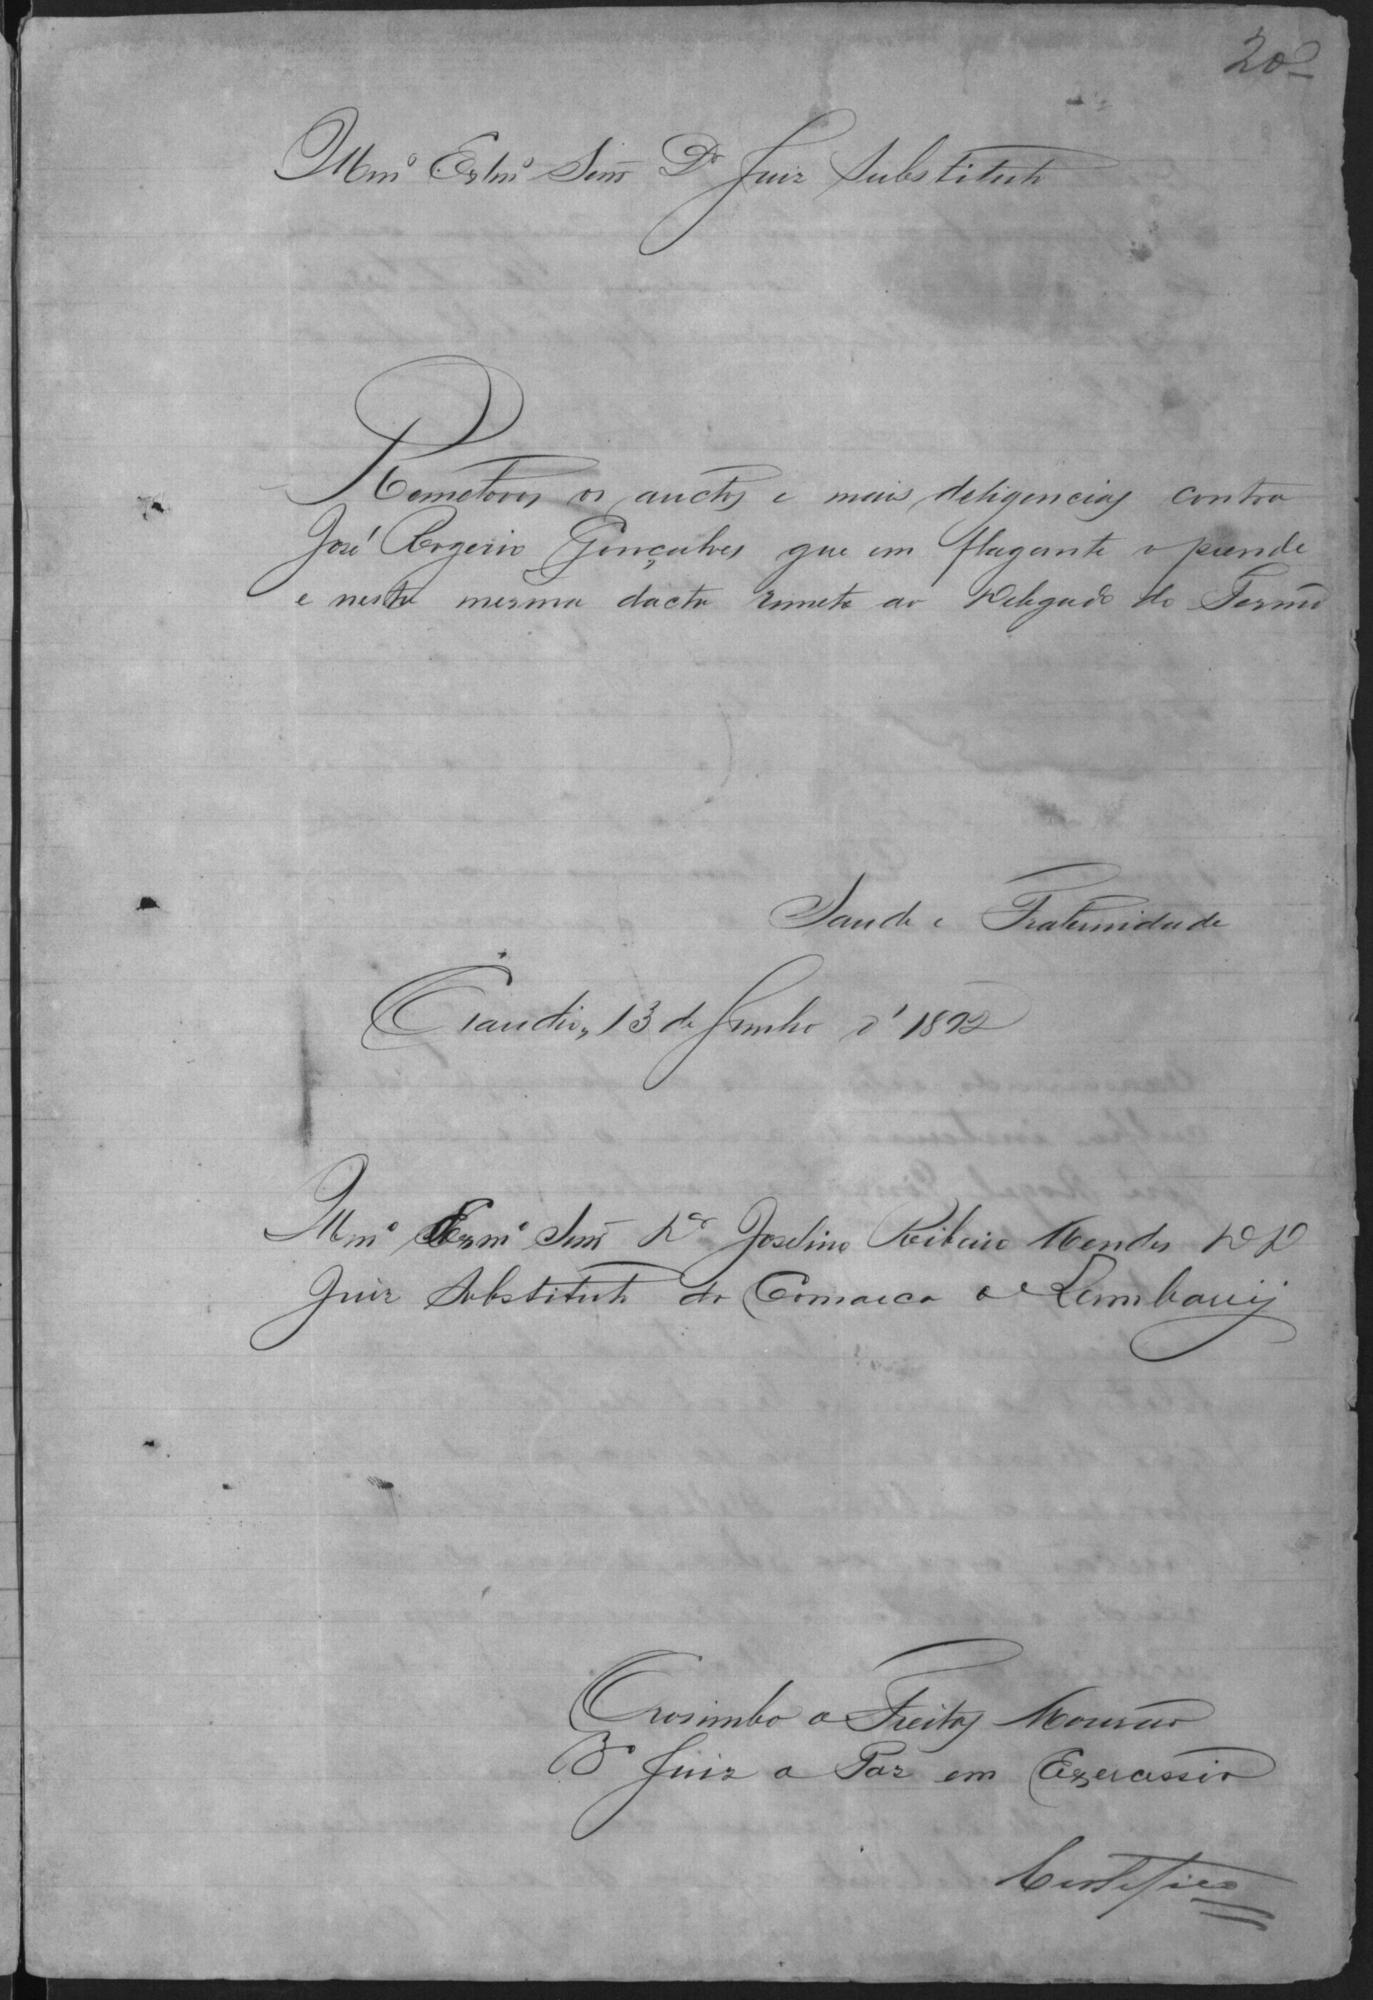 20
Illmº Exlmº Senr Dr Juiz Substituto
Remetovos os auctos e mais deligencias contra
José Rogerio Gonçalves que em flagante o prende
e nesta mesma dacta remeto ao Delegado do Termo
Saude e Fraternidade
Claudio, 13 de Junho d' 1892
Illmº Exmº Senr Dr Joselino Ribeiro Mendes D D
Juiz Substituto da Comarca de Itambacury
Orosimbo de Freitas Mourão
3º Juiz de Paz em Exercissio
Certefico